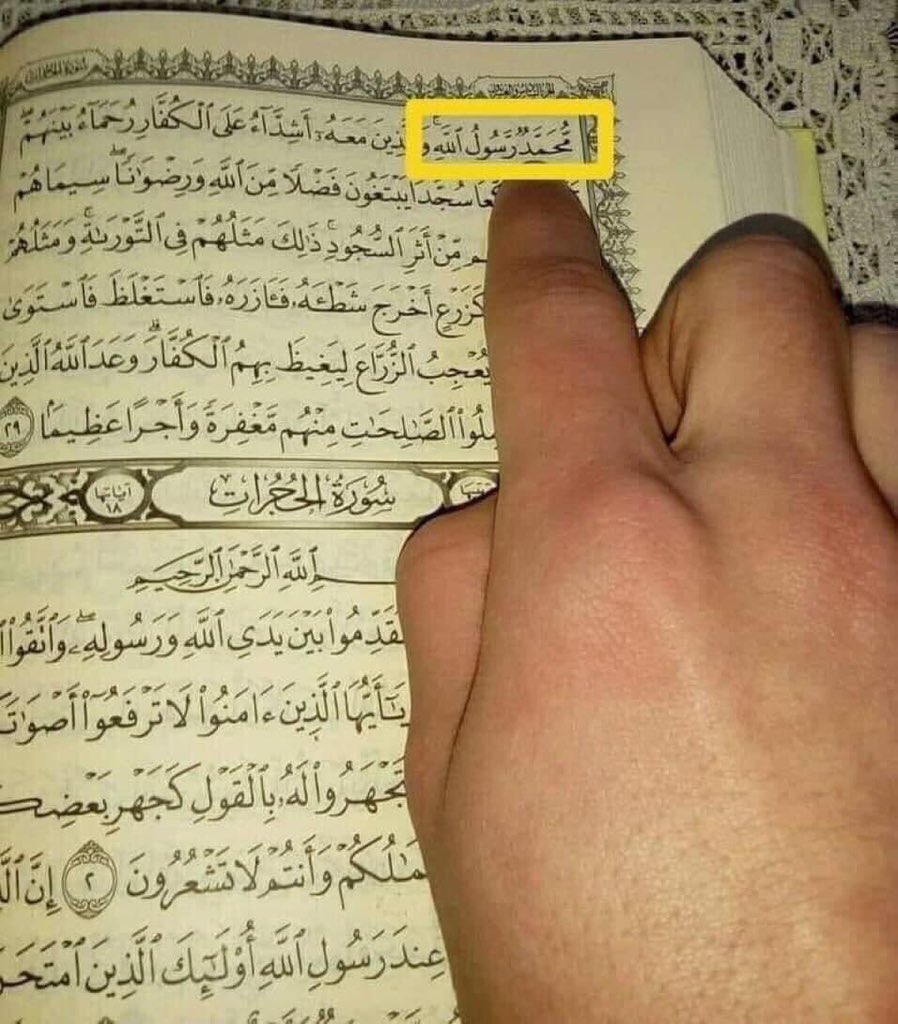 الجزء السادس والعشرون
مُّحَمَّدٌ رَّسُولُ ٱللَّهِۚ وَٱلَّذِينَ مَعَهُۥٓ أَشِدَّآءُ عَلَى ٱلْكُفَّارِ رُحَمَآءُ بَيْنَهُمْۖ
سُجَّدًا يَبْتَغُونَ فَضْلًا مِّنَ ٱللَّهِ وَرِضْوَٰنًاۖ سِيمَاهُمْ
مِّنْ أَثَرِ ٱلسُّجُودِۚ ذَٰلِكَ مَثَلُهُمْ فِى ٱلتَّوْرَىٰةِۚ وَمَثَلُهُمْ
كَزَرْعٍ أَخْرَجَ شَطْـَٔهُۥ فَـَٔازَرَهُۥ فَٱسْتَغْلَظَ فَٱسْتَوَىٰ
يُعْجِبُ ٱلزُّرَّاعَ لِيَغِيظَ بِهِمُ ٱلْكُفَّارَۗ وَعَدَ ٱللَّهُ ٱلَّذِينَ
ٱلصَّٰلِحَٰتِ مِنْهُم مَّغْفِرَةً وَأَجْرًا عَظِيمًۢا ٢٩
سُورَةُ الحُجُرَاتِ آياتها ١٨
ٱللَّهِ ٱلرَّحْمَٰنِ ٱلرَّحِيمِ
تُقَدِّمُوا۟ بَيْنَ يَدَىِ ٱللَّهِ وَرَسُولِهِۦۖ وَٱتَّقُوا۟
يَٰٓأَيُّهَا ٱلَّذِينَ ءَامَنُوا۟ لَا تَرْفَعُوٓا۟ أَصْوَٰتَ
تَجْهَرُوا۟ لَهُۥ بِٱلْقَوْلِ كَجَهْرِ بَعْضِكُ
وَأَنتُمْ لَا تَشْعُرُونَ ٢ إِنَّ
عِندَ رَسُولِ ٱللَّهِ أُو۟لَٰٓئِكَ ٱلَّذِينَ ٱمْتَحَنَ